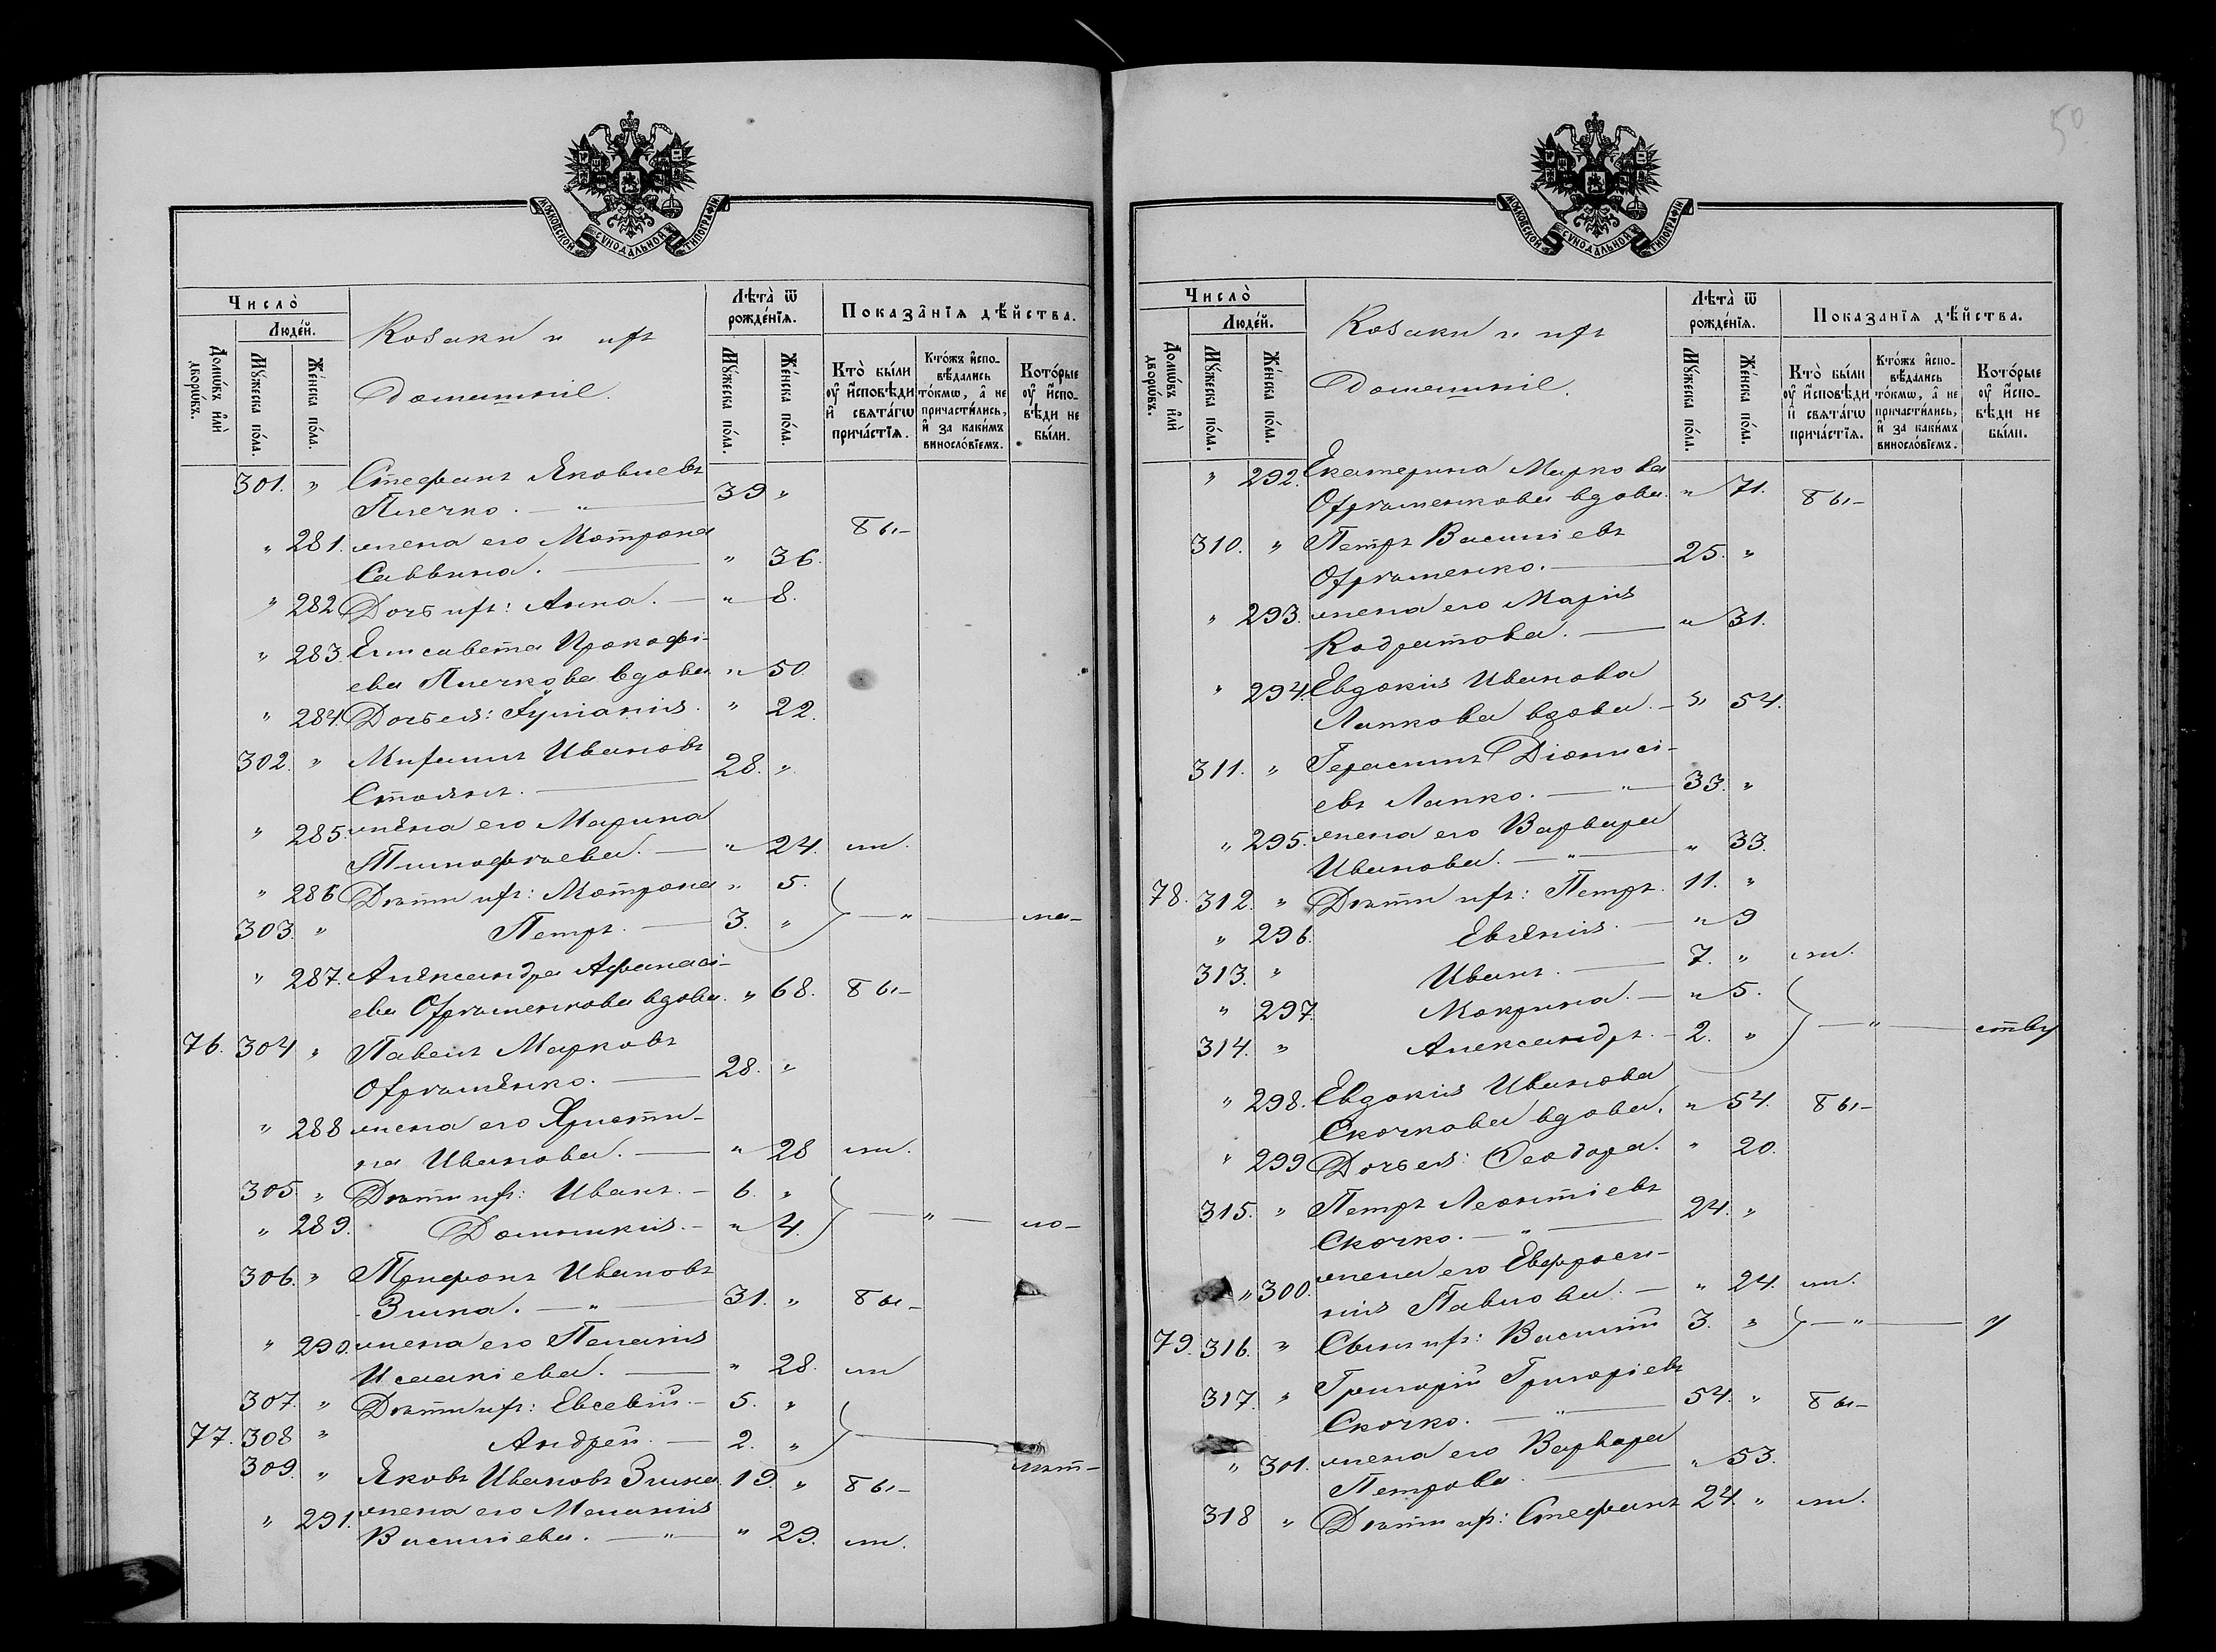 МОСКОВСКОЙ СѴНОДАЛЬНОЙ ТИПОГРАФІИ
Число̀
Люде́й.
Домѡ́въ и҆лѝ дворѡ́въ.
Мꙋ́жеска по́ла.
Же́нска по́ла.
Козаки и ихъ
Домашніе.
Лѣта̀ ѿ рожде́нїѧ.
Мꙋ́жеска по́ла.
Же́нска по́ла.
Показа̑нїѧ дѣ́йства.
Кто̀ бы́ли оу҆ и҆сповѣди и҆ свѧта́гѡ прича́стїѧ.
Кто́жъ и҆спо-вѣдались то́кмѡ, а҆ не причасти́лись, и҆ за каки́мъ винослові́емъ.
Кото́рые оу҆ и҆спо-вѣди не бы́ли.
301. " Стефанъ Яковлевъ
Плечко. — " — 39 "
" 281. жена его Мотрона бы-
Саввина. — " 36.
" 282 Дочь ихъ: Анна. — " 8.
" 283. Елисавета Прокофі-
ева Плечкова вдова " 50.
" 284. Дочь ея: Іуліанія. " 22.
302. " Михаилъ Ивановъ
Стоянъ. — 28. "
" 285. жена его Марина
Тимофѣева. — " 24. ли.
" 286 Дѣти ихъ: Мотрона " 5.
303. " Петръ. — 3. " — " — ма-
" 287. Александра Афанасі-
ева Охрѣменкова вдова. " 68. бы-
76. 304 " Павелъ Марковъ
Охрѣменко. — 28. "
" 288 жена его Христи-
на Иванова. — " 28 ли.
305. " Дѣти ихъ: Иванъ. — 6. "
" 289. Домникія. — " 4. — " — ло-
306. " Трифонъ Ивановъ
Зима. — " — 31. " бы-
" 290. жена его Пелагія
Исаакіева. — " 28. ли
307. " Дѣти ихъ: Евсевій. — 5. "
77. 308 " Андрей. — 2. " —
309. " Яковъ Ивановъ Зима 19. " бы- лѣт-
" 291. жена его Меланія
Василіева. — " — " 29. ли.
50
МОСКОВСКОЙ СѴНОДАЛЬНОЙ ТИПОГРАФІИ
Число̀
Люде́й.
Домѡ́въ и҆лѝ дворѡ́въ.
Мꙋ́жеска по́ла.
Же́нска по́ла.
Козаки и ихъ
Домашніе.
Лѣта̀ ѿ рожде́нїѧ.
Мꙋ́жеска по́ла.
Же́нска по́ла.
Показа̑нїѧ дѣ́йства.
Кто̀ бы́ли оу҆ и҆сповѣди и҆ свѧта́гѡ прича́стїѧ.
Кто́жъ и҆спо-вѣдались то́кмѡ, а҆ не причасти́лись, и҆ за каки́мъ винослові́емъ.
Кото́рые оу҆ и҆спо-вѣди не бы́ли.
" 292. Екатерина Маркова
Охрѣменкова вдова. " 71. бы-
310. " Петръ Василіевъ
Охрѣменко. — 25. "
" 293. жена его Марія
Кодратова. — " 31.
" 294. Евдокія Иванова
Лапкова вдова. — " 54.
311. " Герасимъ Діонисі-
евъ Лапко. — " — 33. "
" 295. жена его Варвара
Иванова. — " — " 33.
78. 312. " Дѣти ихъ: Петръ. 11. "
" 296. Евгенія. — " 9
313. " Иванъ. — 7. " ли.
" 297. Мокрина. — " 5.
314. " Александръ. — 2. " — " — ству
" 298. Евдокія Иванова
Скочкова вдова. " 54. бы-
" 299 Дочь ея: Ѳеодора. " 20.
315. " Петръ Леонтіевъ
Скочко. — " — 24. "
" 300. жена его Евфроси-
нія Павлова. — " 24. ли.
79. 316. " Сынъ ихъ: Василій 3. " — " — у
317. " Григорій Григоріевъ
Скочко. — " — 54. " бы-
" 301. жена его Варвара
Петрова. — " 53.
318 " Дѣти ихъ: Стефанъ 24. " ли.